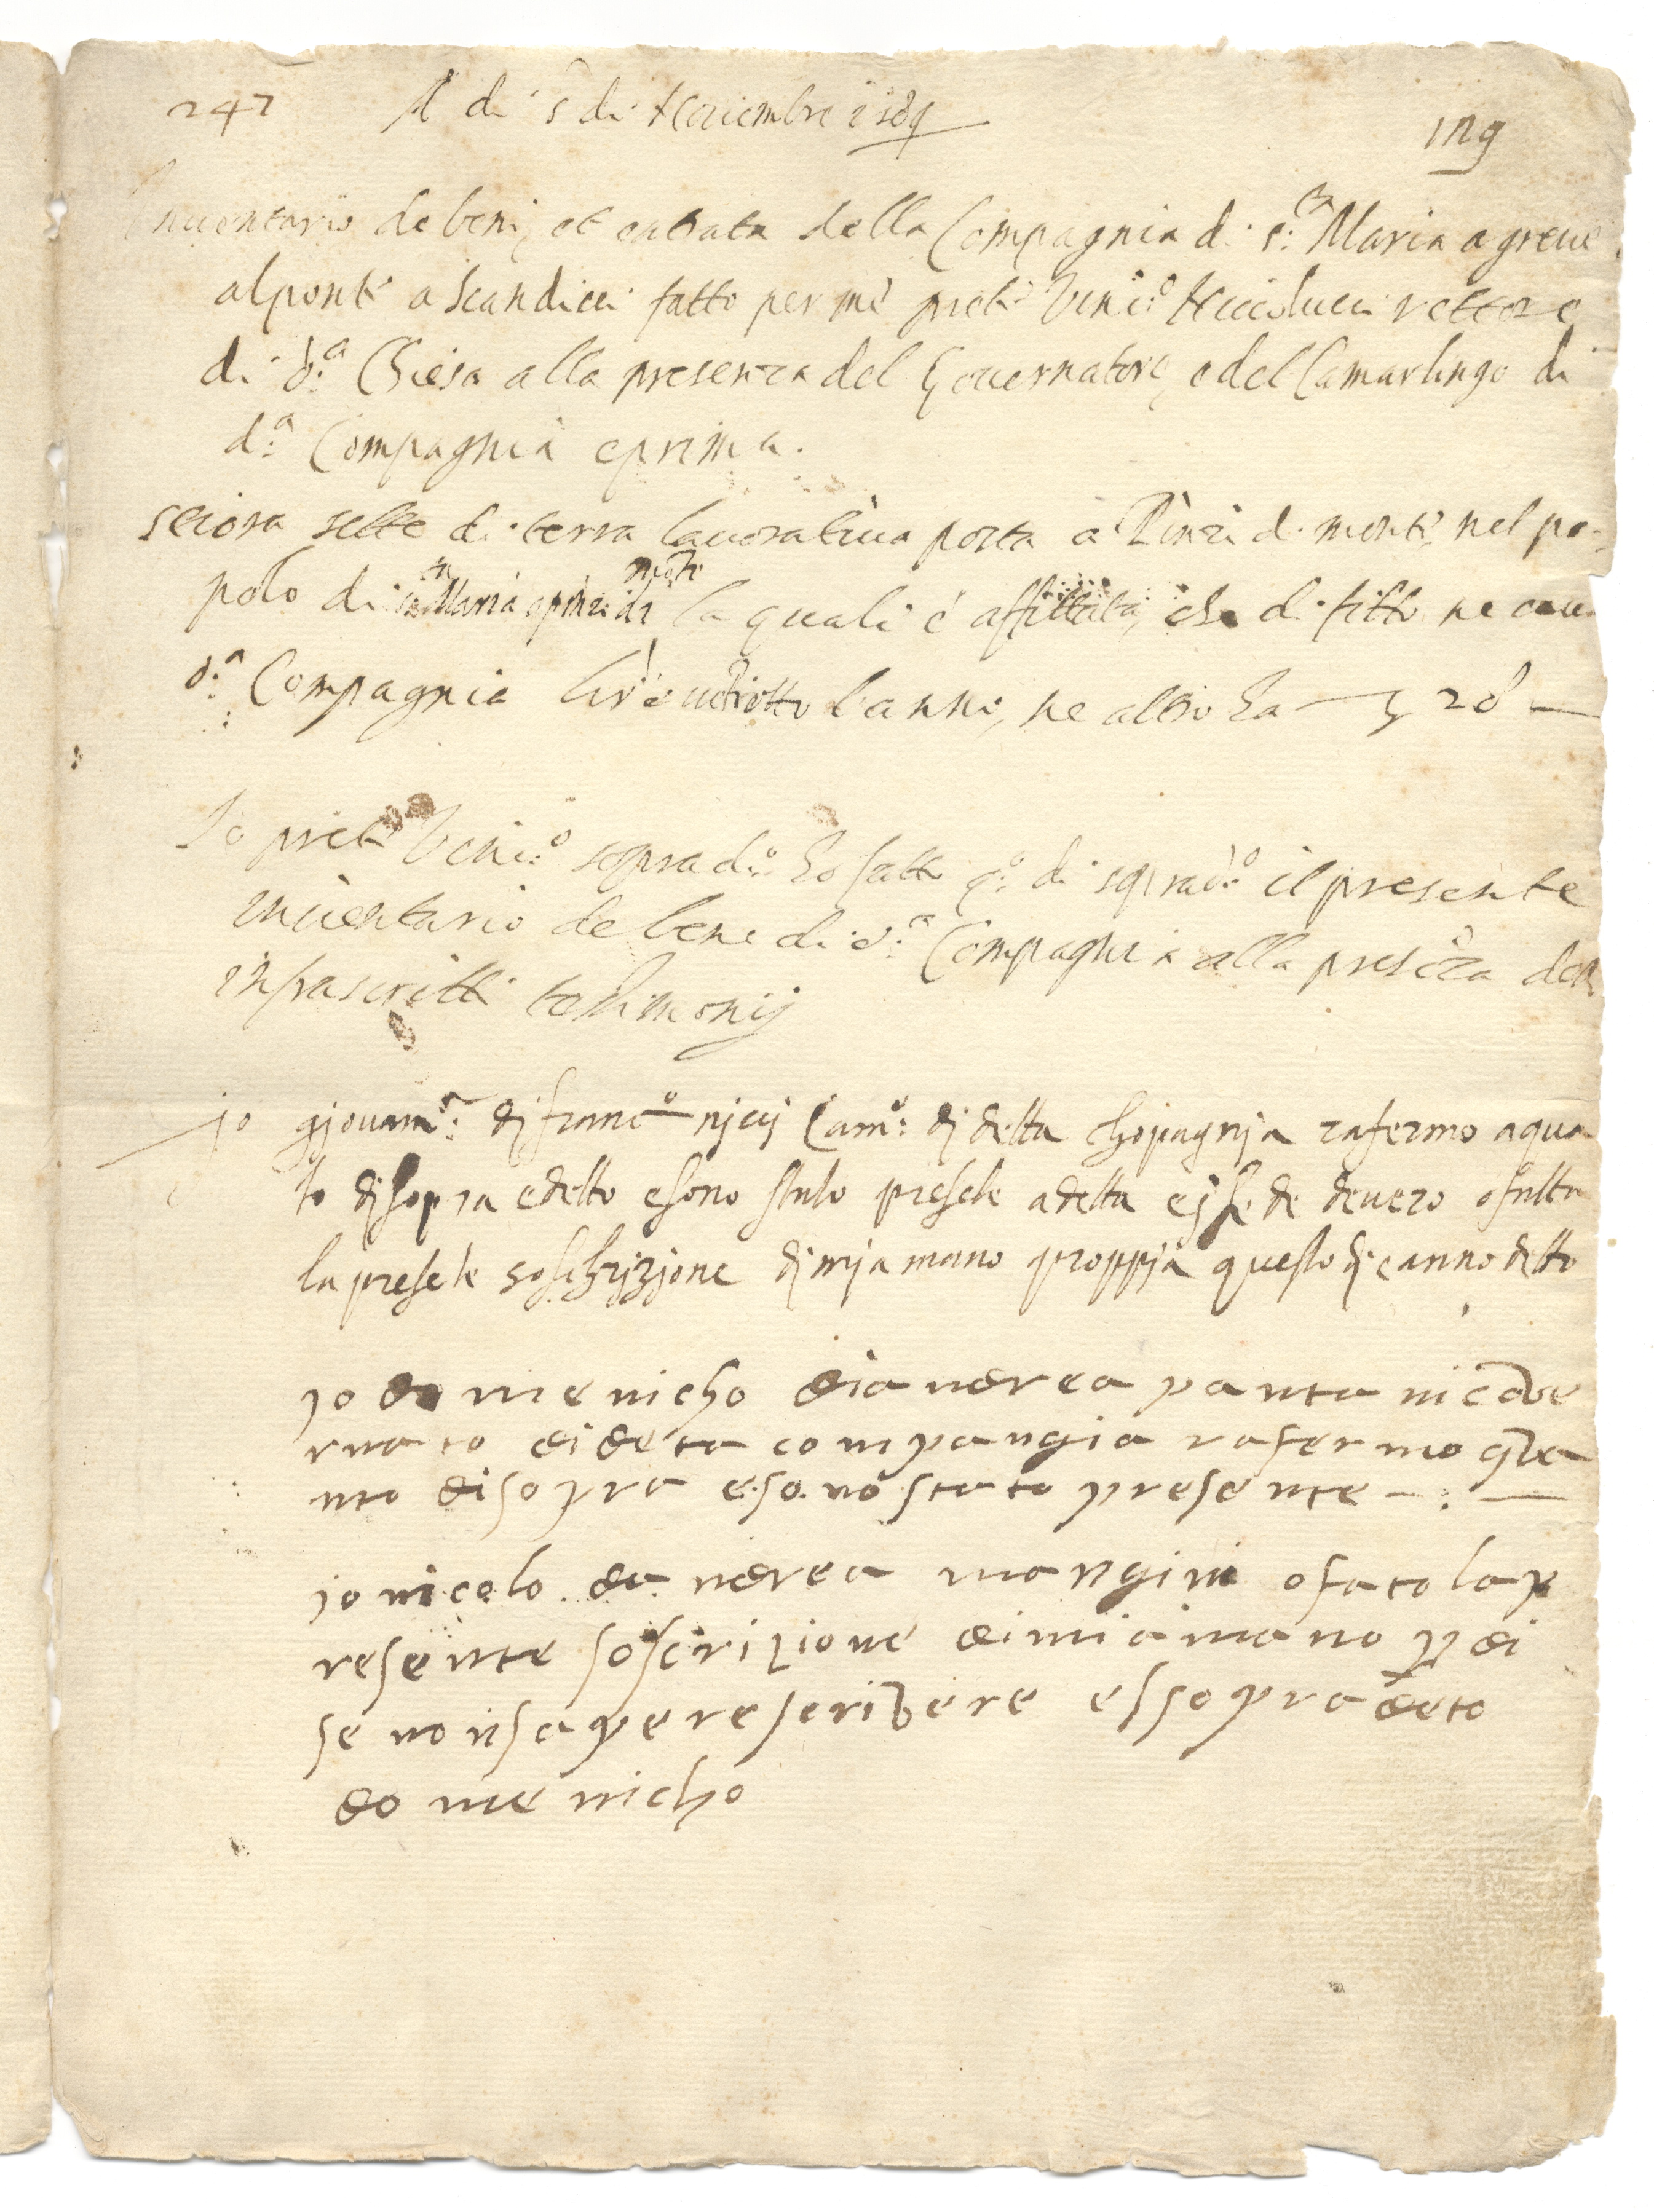 247 A di 5 di Novembre 1589
129
Inventario de beni, et entrata della Compagnia di s:ta Maria a greve
al ponte a Scandicci fatto per me prete Vinc:o Niccolucci rettore
di d:a Chiesa alla presenza del Governatore, e del Camarlingo di
d:a Compagnia e prima.
Seiora sette di terra lavorativa posta à Pinzi di monte, nel po-
polo di s:ta Maria a pinzi di monte la quale è affittata, che di fitto ne cava
d:a Compagnia lire ventiotto l'anno, ne altro ha — 28 —
Io prete Vinc:o soprad:o ho fatto q:o di soprad:o il presente
inventario de bene di d:a Compagnia alla presēza delli
infrascritti testimonij
jo giovann:i dj franc:o njcij Cam:o dj detta chopagnja rafermo a qua
to dj sopra e detto e sono stato presete a detta e j fede de vero o fatto
la presete soschrizjone dj mja mano proppja questo dj e anno detto
jo domenicho di andrea pantani gove
rnato di deta compangia rafermo qua
nto di sopra e sono stato presente — . —
jo nicolo da ndrea mangini o fato la p
resente soscrizione di mia mano p di
se non sapere scrivere e ssopra deto
domenicho